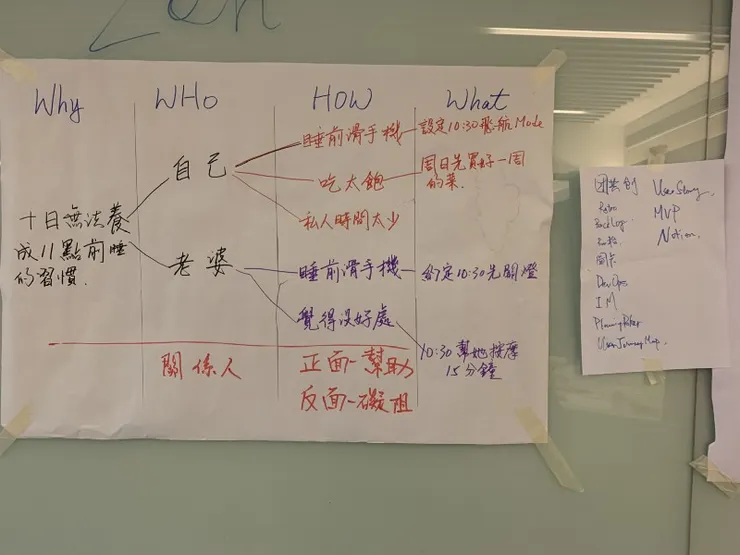 Zen
Why WHO HOW What
十日無法養
成11點前睡
的習慣.
自己
老婆
睡前滑手機
吃太飽
私人時間太少
睡前滑手機
覺得沒好處
設定10:30飛航Mode
周日先買好一周
的菜.
約定10:30先關燈
10:30幫她按摩
15分鐘
關係人
正面-幫助
反面-礙阻
UserStory.
Backlog.
MVP
Notion.
DevOps
IM
PlanningPoker
UserJourneyMap.